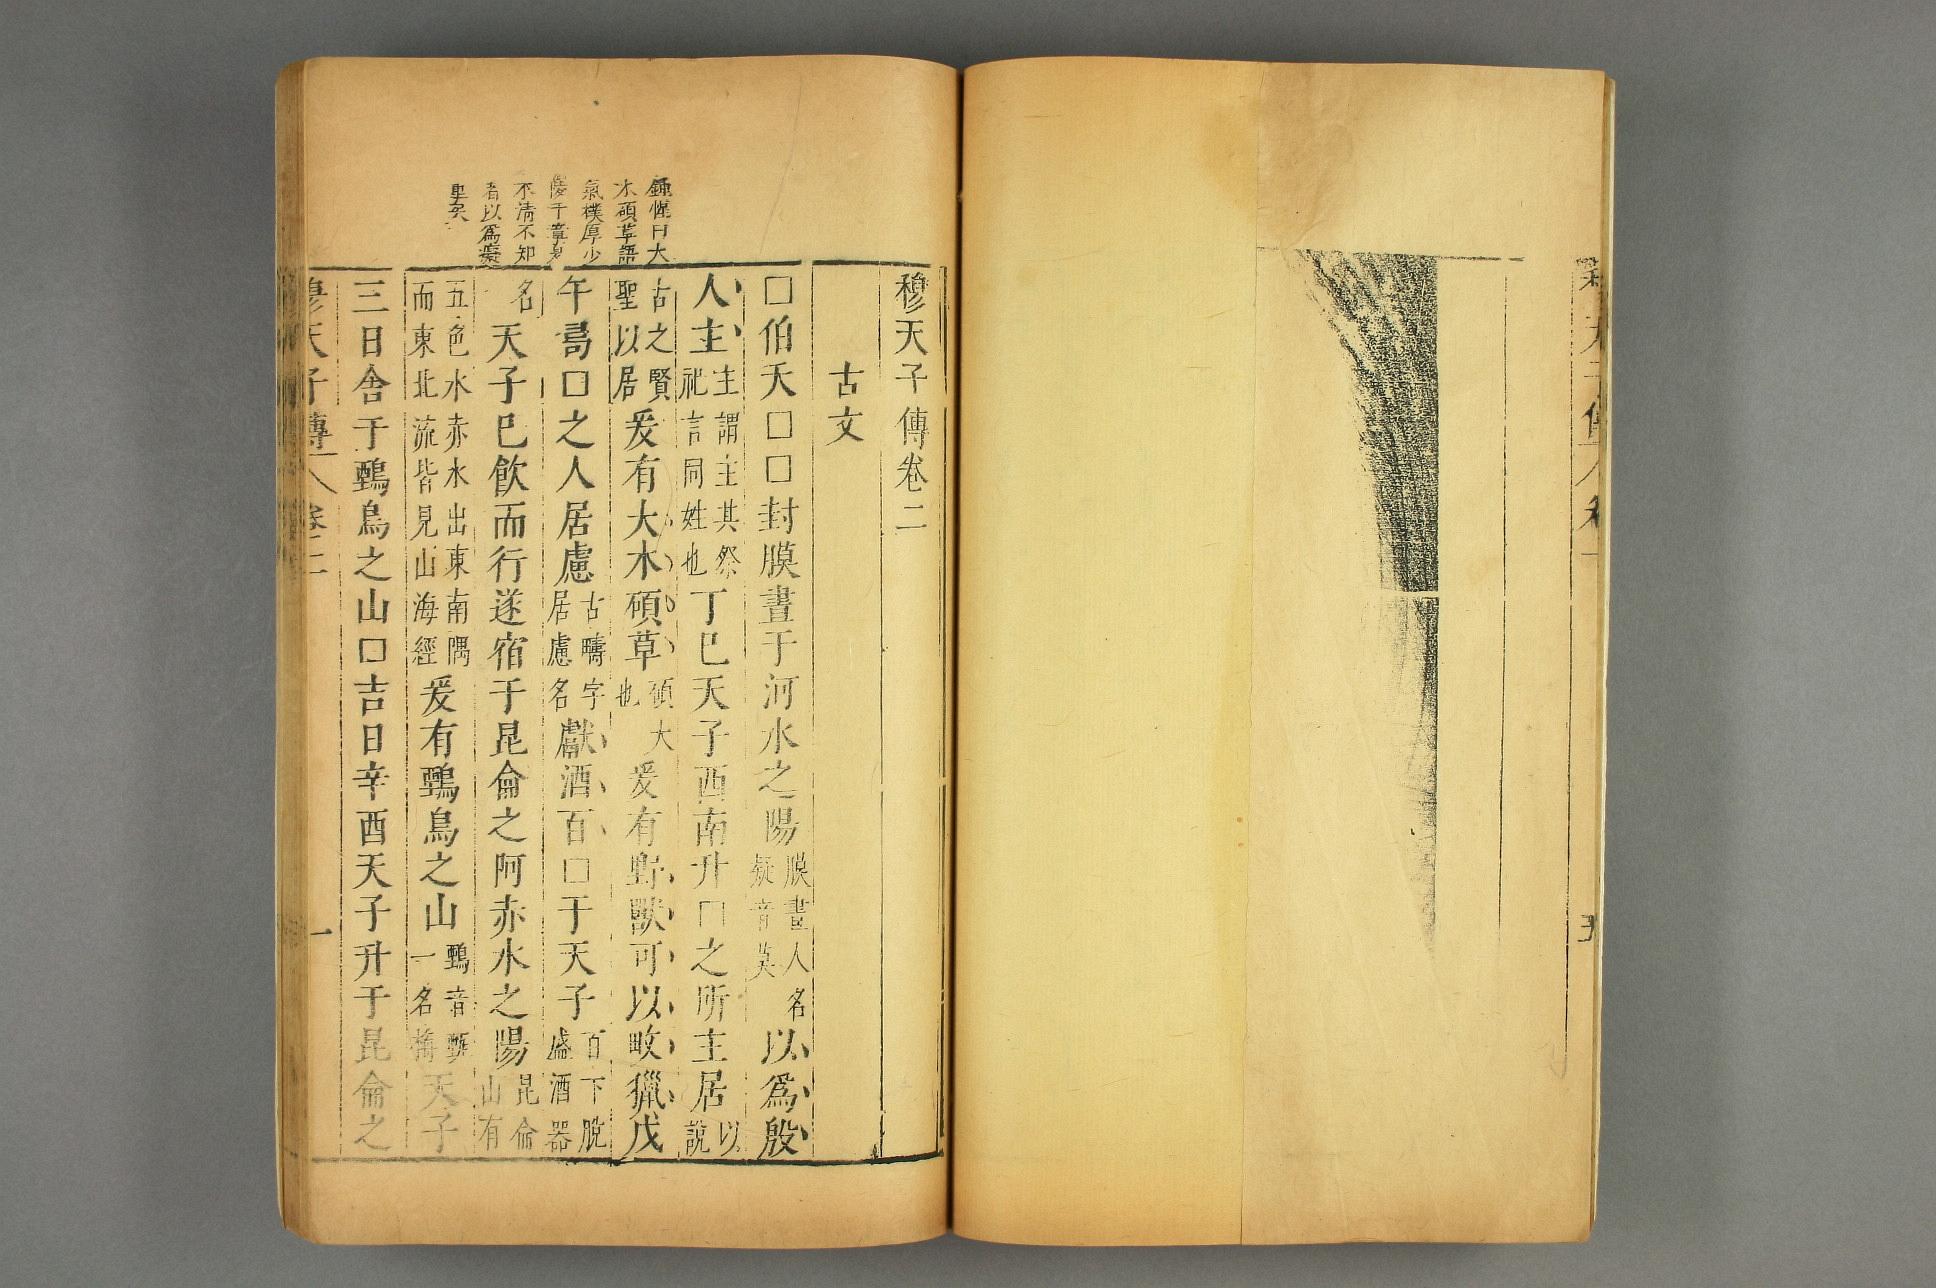 穆天子傳卷二
古文
□伯夭□□封膜晝于河水之陽膜晝人名疑音莫以爲殷
人主主謂主其祭祀言同姓也丁巳天子西南升□之所主居以說
古之賢聖以居爰有大木碩草碩大也爰有野獸可以畋獵戊
午𠷎□之人居慮古疇字居慮名獻酒百□于天子百下脫盛酒器
名天子已飲而行遂宿于昆侖之阿赤水之陽昆侖山有
五色水赤水出東南隅而東北流皆見山海經爰有鶊鳥之山鶊音甄一名天子
三日舍于鶊鳥之山□吉日辛酉天子升于昆侖之
穆天子傳 卷二 一
鍾惺曰大
木碩草語
氣樸厚少
陵千章夏
不清不知
者以爲癡
重矣